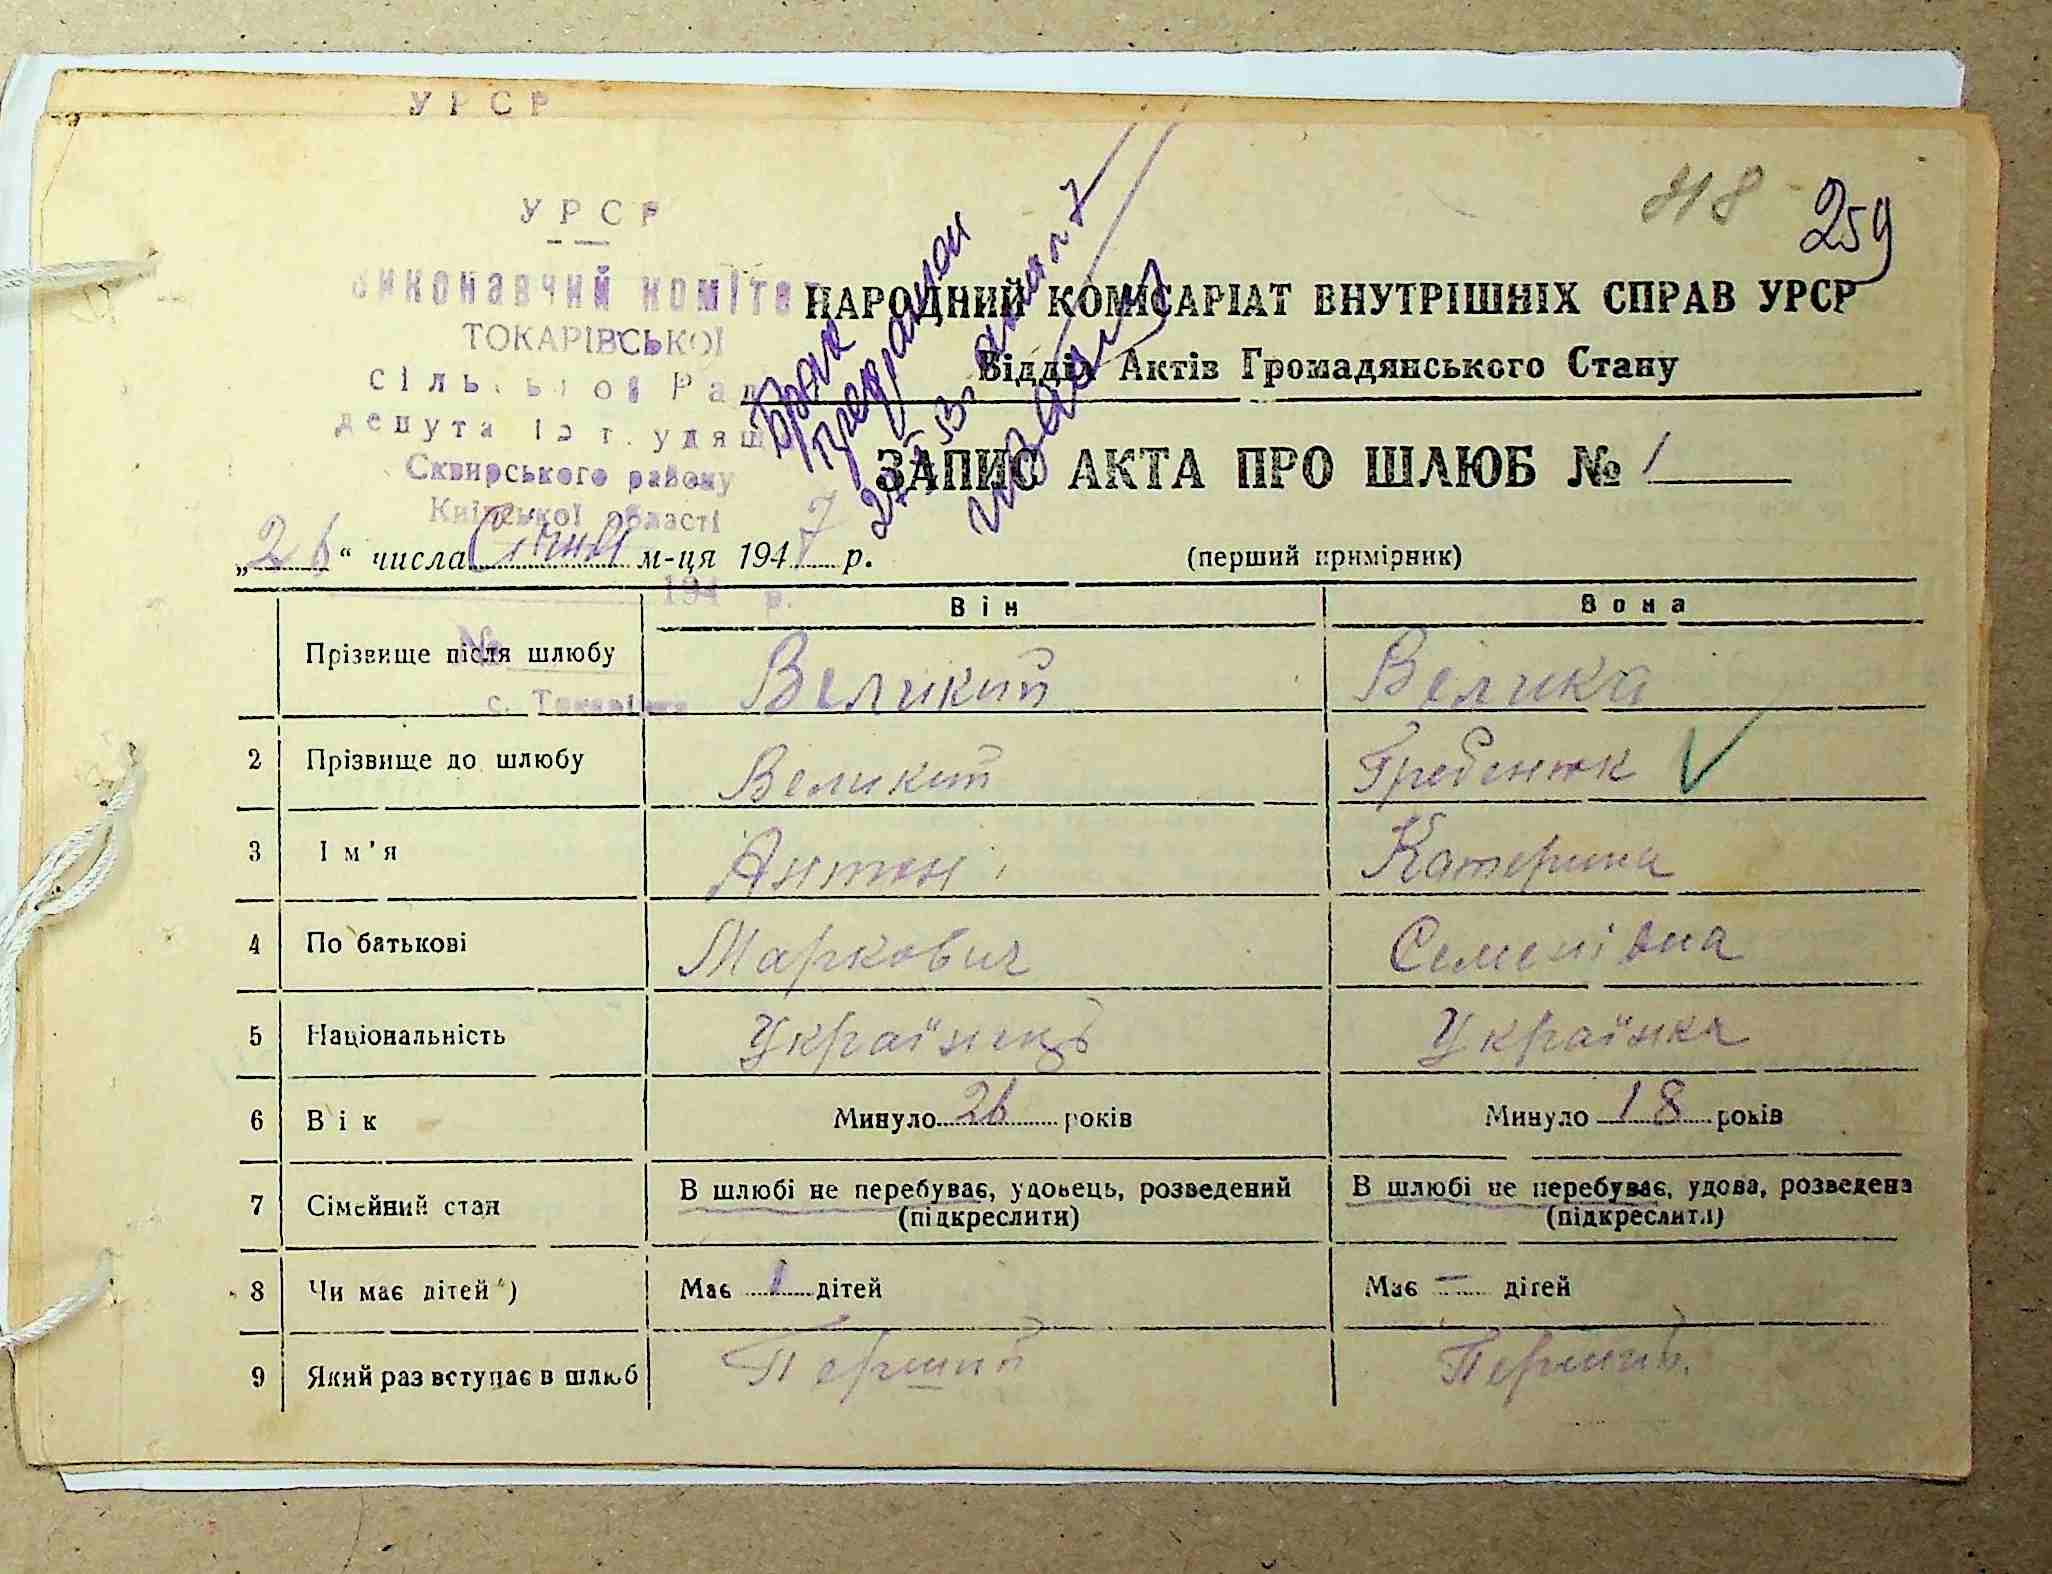 УРСР
УРСР
Виконавчий коміте
ТОКАРІВСЬКОЇ
сільської Рад
депутатів трудящ
Сквирського району
Київської області
194 р.
№
с. Токарівка
418 259
НАРОДНИЙ КОМІСАРІАТ ВНУТРІШНІХ СПРАВ УРСР
Відділ Актів Громадянського Стану
Брак
ЗАПИС АКТА ПРО ШЛЮБ № 1
„26“ числа Січня м-ця 1947 р. (перший примірник)
Він Вона
Прізвище після шлюбу Великий Велика
2 Прізвище до шлюбу Великий Гребенюк
3 Ім'я Антон Катерина
4 По батькові Маркович Семенівна
5 Національність Українець Українка
6 Вік Минуло 26 років Минуло 18 років
7 Сімейний стан В шлюбі не перебуває, удовець, розведений В шлюбі не перебуває, удова, розведена
(підкреслити) (підкреслити)
8 Чи має дітей*) Має 1 дітей Має — дітей
9 Який раз вступає в шлюб Перший Перший.